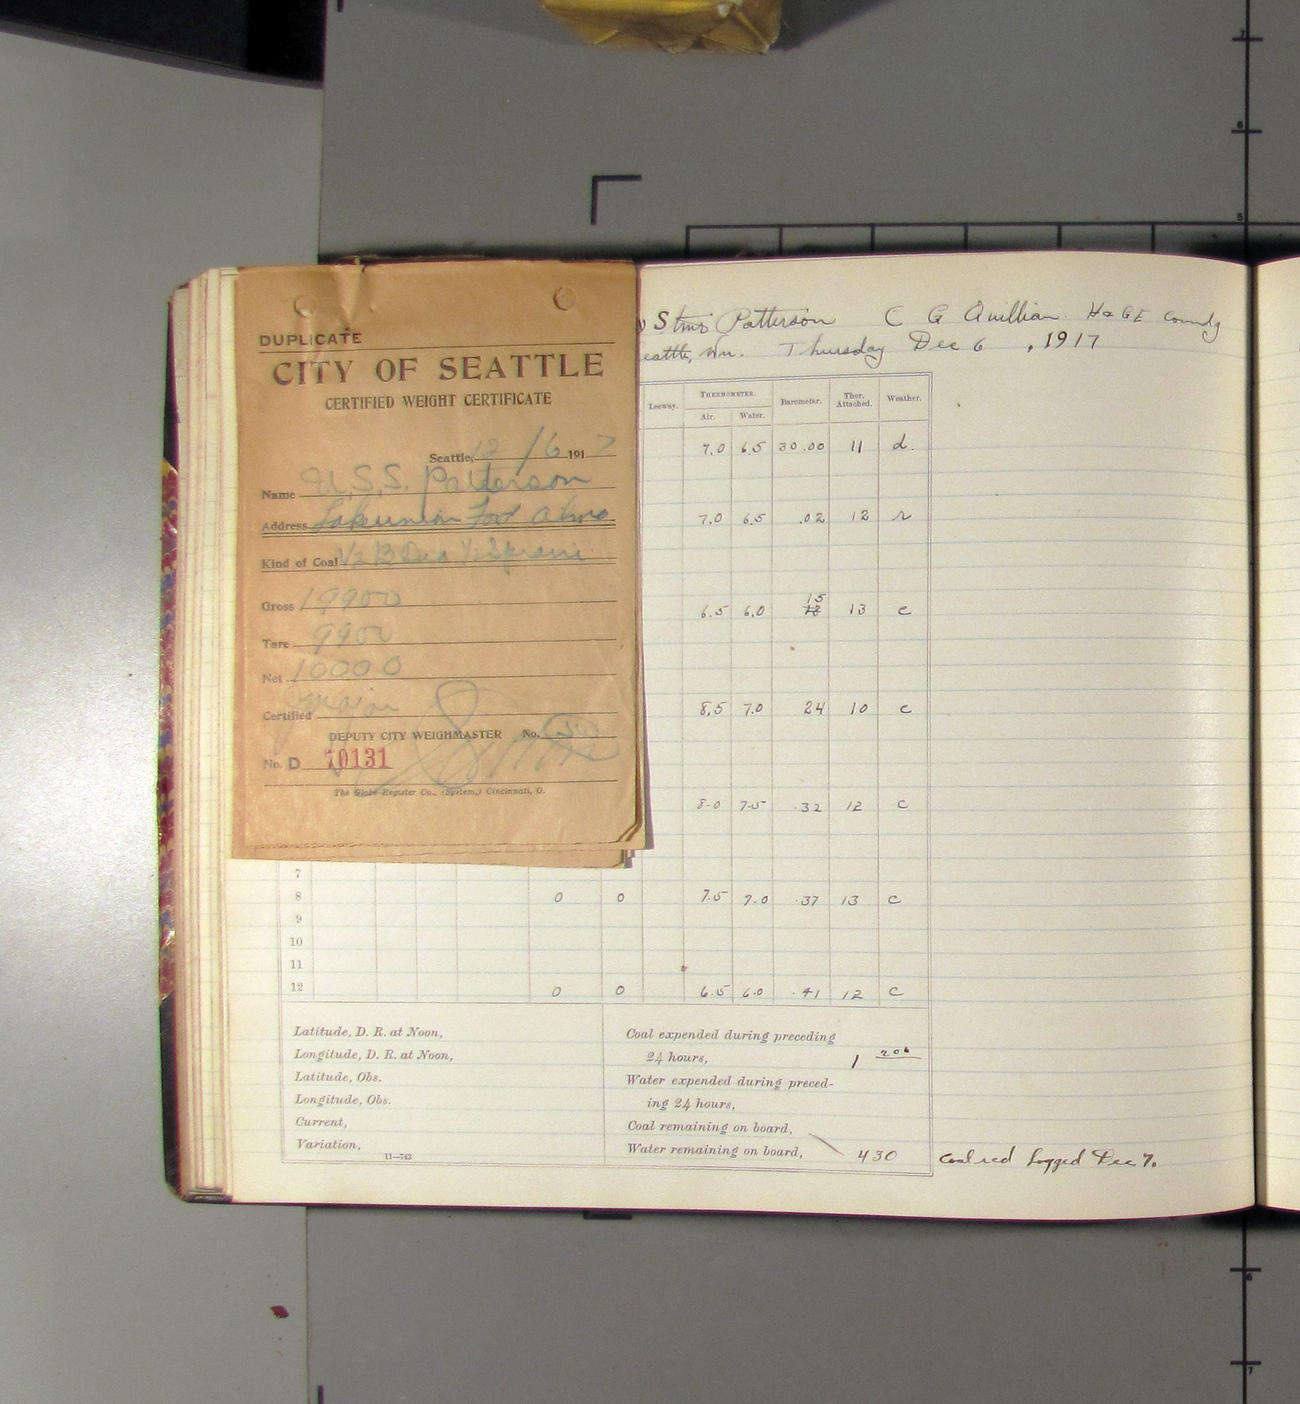 DUPLICATE
CITY OF SEATTLE
CERTIFIED WEIGHT CERTIFICATE
Seattle, 12/6 1917
Name U.S.S. Patterson
Address Lakeunion Foot
Kind of Coal 1/2 1/2
Gross 19900
Tare 9900
Net 10000
Certified
DEPUTY CITY WEIGHMASTER No.
No. D 70131
The Globe Register Co., (System,) Cincinnati, O.
Stmr Patterson C G Quillian. H & GE Comndg
eattle, Wn. Thursday Dec 6 , 1917
Leeway. THERMOMETER. Barometer. Ther. Attached. Weather.
Air. Water.
7.0 6.5 30.00 11 d.
7.0 6.5 .02 12 r
15
6.5 6.0 13 c
8.5 7.0 24 10 c
8.0 7.5 .32 12 c
7
8 0 0 7.5 7.0 .37 13 c
9
10
11
12 0 0 6.5 6.0 .41 12 c
Latitude, D. R. at Noon,
Longitude, D. R. at Noon,
Latitude, Obs.
Longitude, Obs.
Current,
Variation,
11—763
Coal expended during preceding
24 hours, 1
Water expended during preced-
ing 24 hours,
Coal remaining on board,
Water remaining on board, 430
Coal red logged Dec 7.